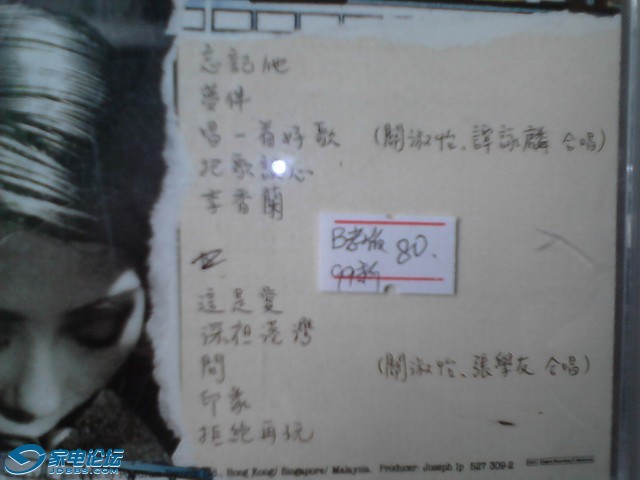 忘記他
夢伴
唱一首好歌 (關淑怡、譚詠麟 合唱)
把歌談心
李香蘭
B老版 80.
99新
這是愛
深祖港灣
問 (關淑怡、張學友 合唱)
印象
拒絕再玩
Hong Kong/ Singapore/ Malaysia. Producer: Joseph Ip 527 309-2
家电论坛
JDBBS.COM